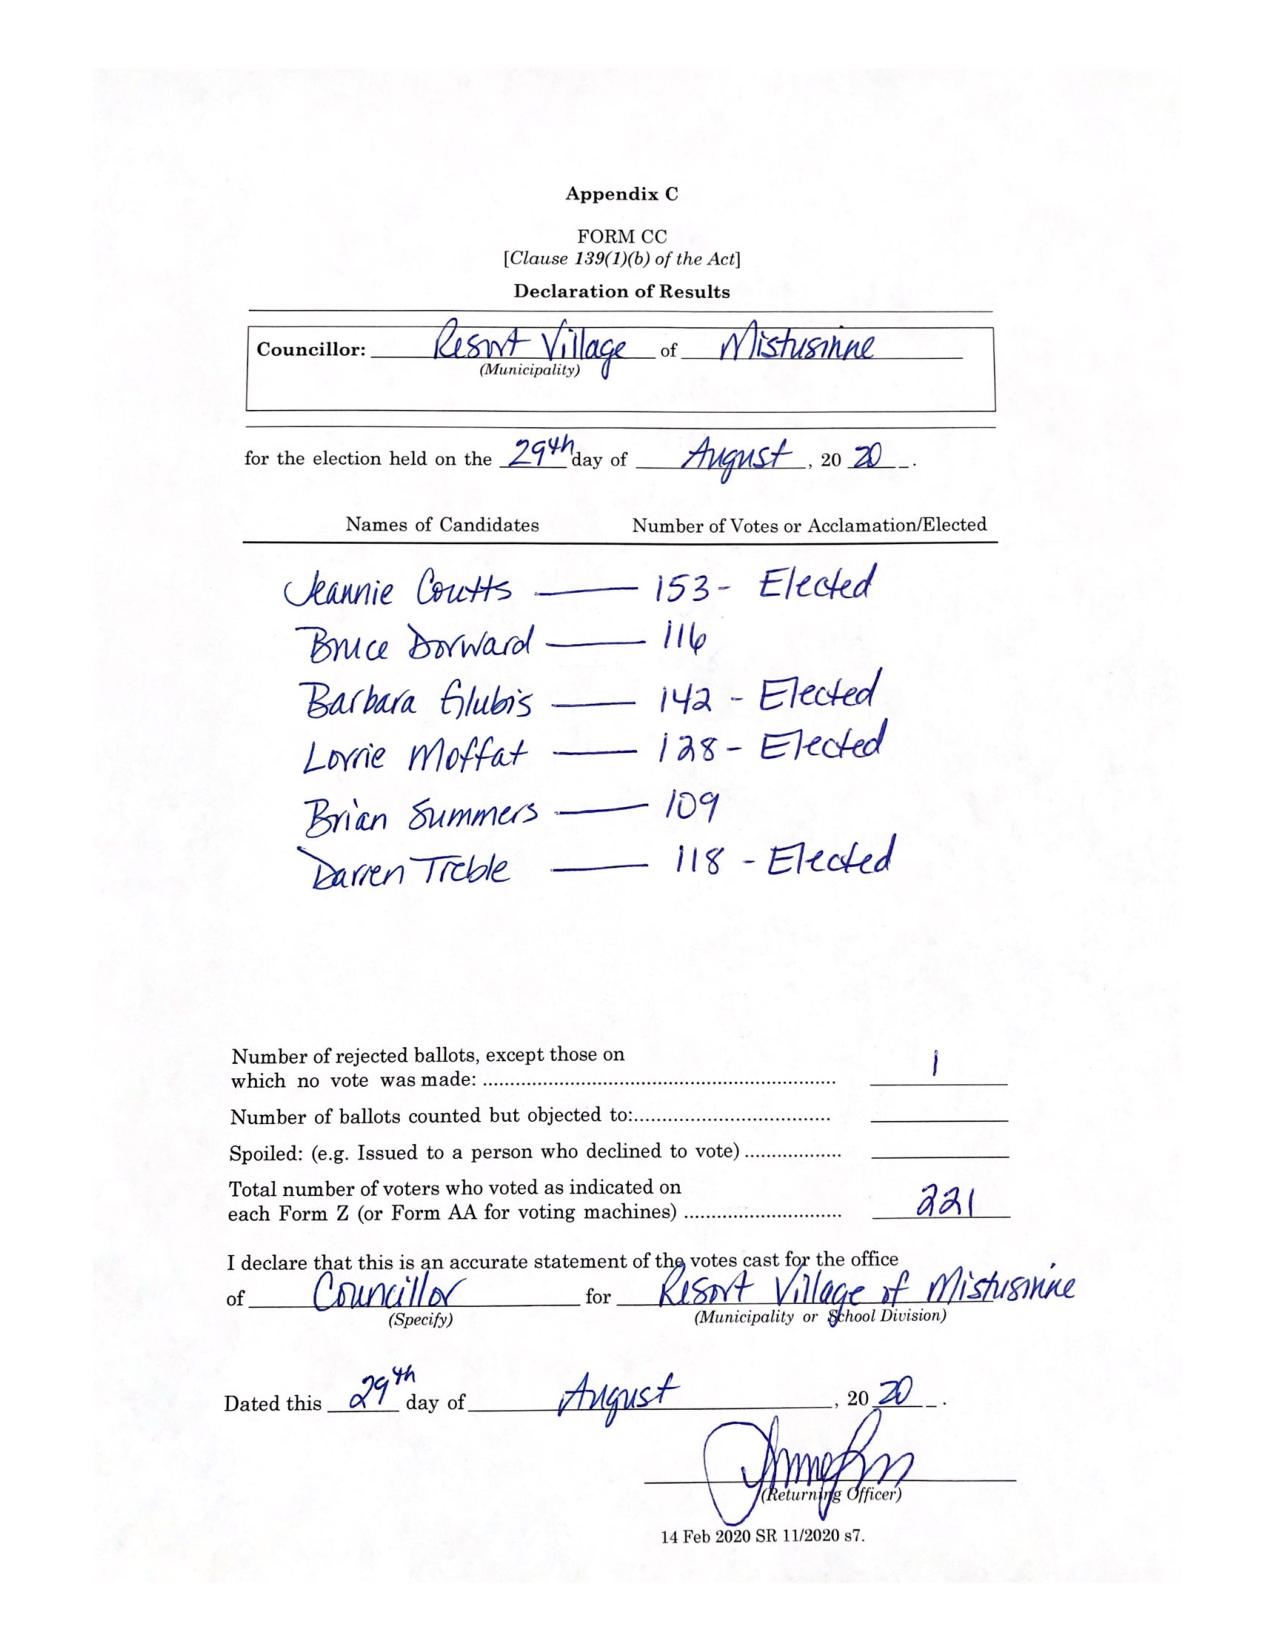 Appendix C
FORM CC
[Clause 139(1)(b) of the Act]
Declaration of Results
Councillor: Resort Village of Mistusinne
(Municipality)
for the election held on the 29th day of August, 20 20.
Names of Candidates Number of Votes or Acclamation/Elected
Jeannie Coutts — 153 - Elected
Bruce Dorward — 116
Barbara Glubis — 142 - Elected
Lorrie Moffat — 128 - Elected
Brian Summers — 109
Darren Treble — 118 - Elected
Number of rejected ballots, except those on
which no vote was made: .................................................................. 1
Number of ballots counted but objected to:.....................................
Spoiled: (e.g. Issued to a person who declined to vote) .................
Total number of voters who voted as indicated on
each Form Z (or Form AA for voting machines) ............................. 221
I declare that this is an accurate statement of the votes cast for the office
of Councillor for Resort Village of Mistusinne
(Specify) (Municipality or School Division)
Dated this 29th day of August, 20 20.
(Returning Officer)
14 Feb 2020 SR 11/2020 s7.